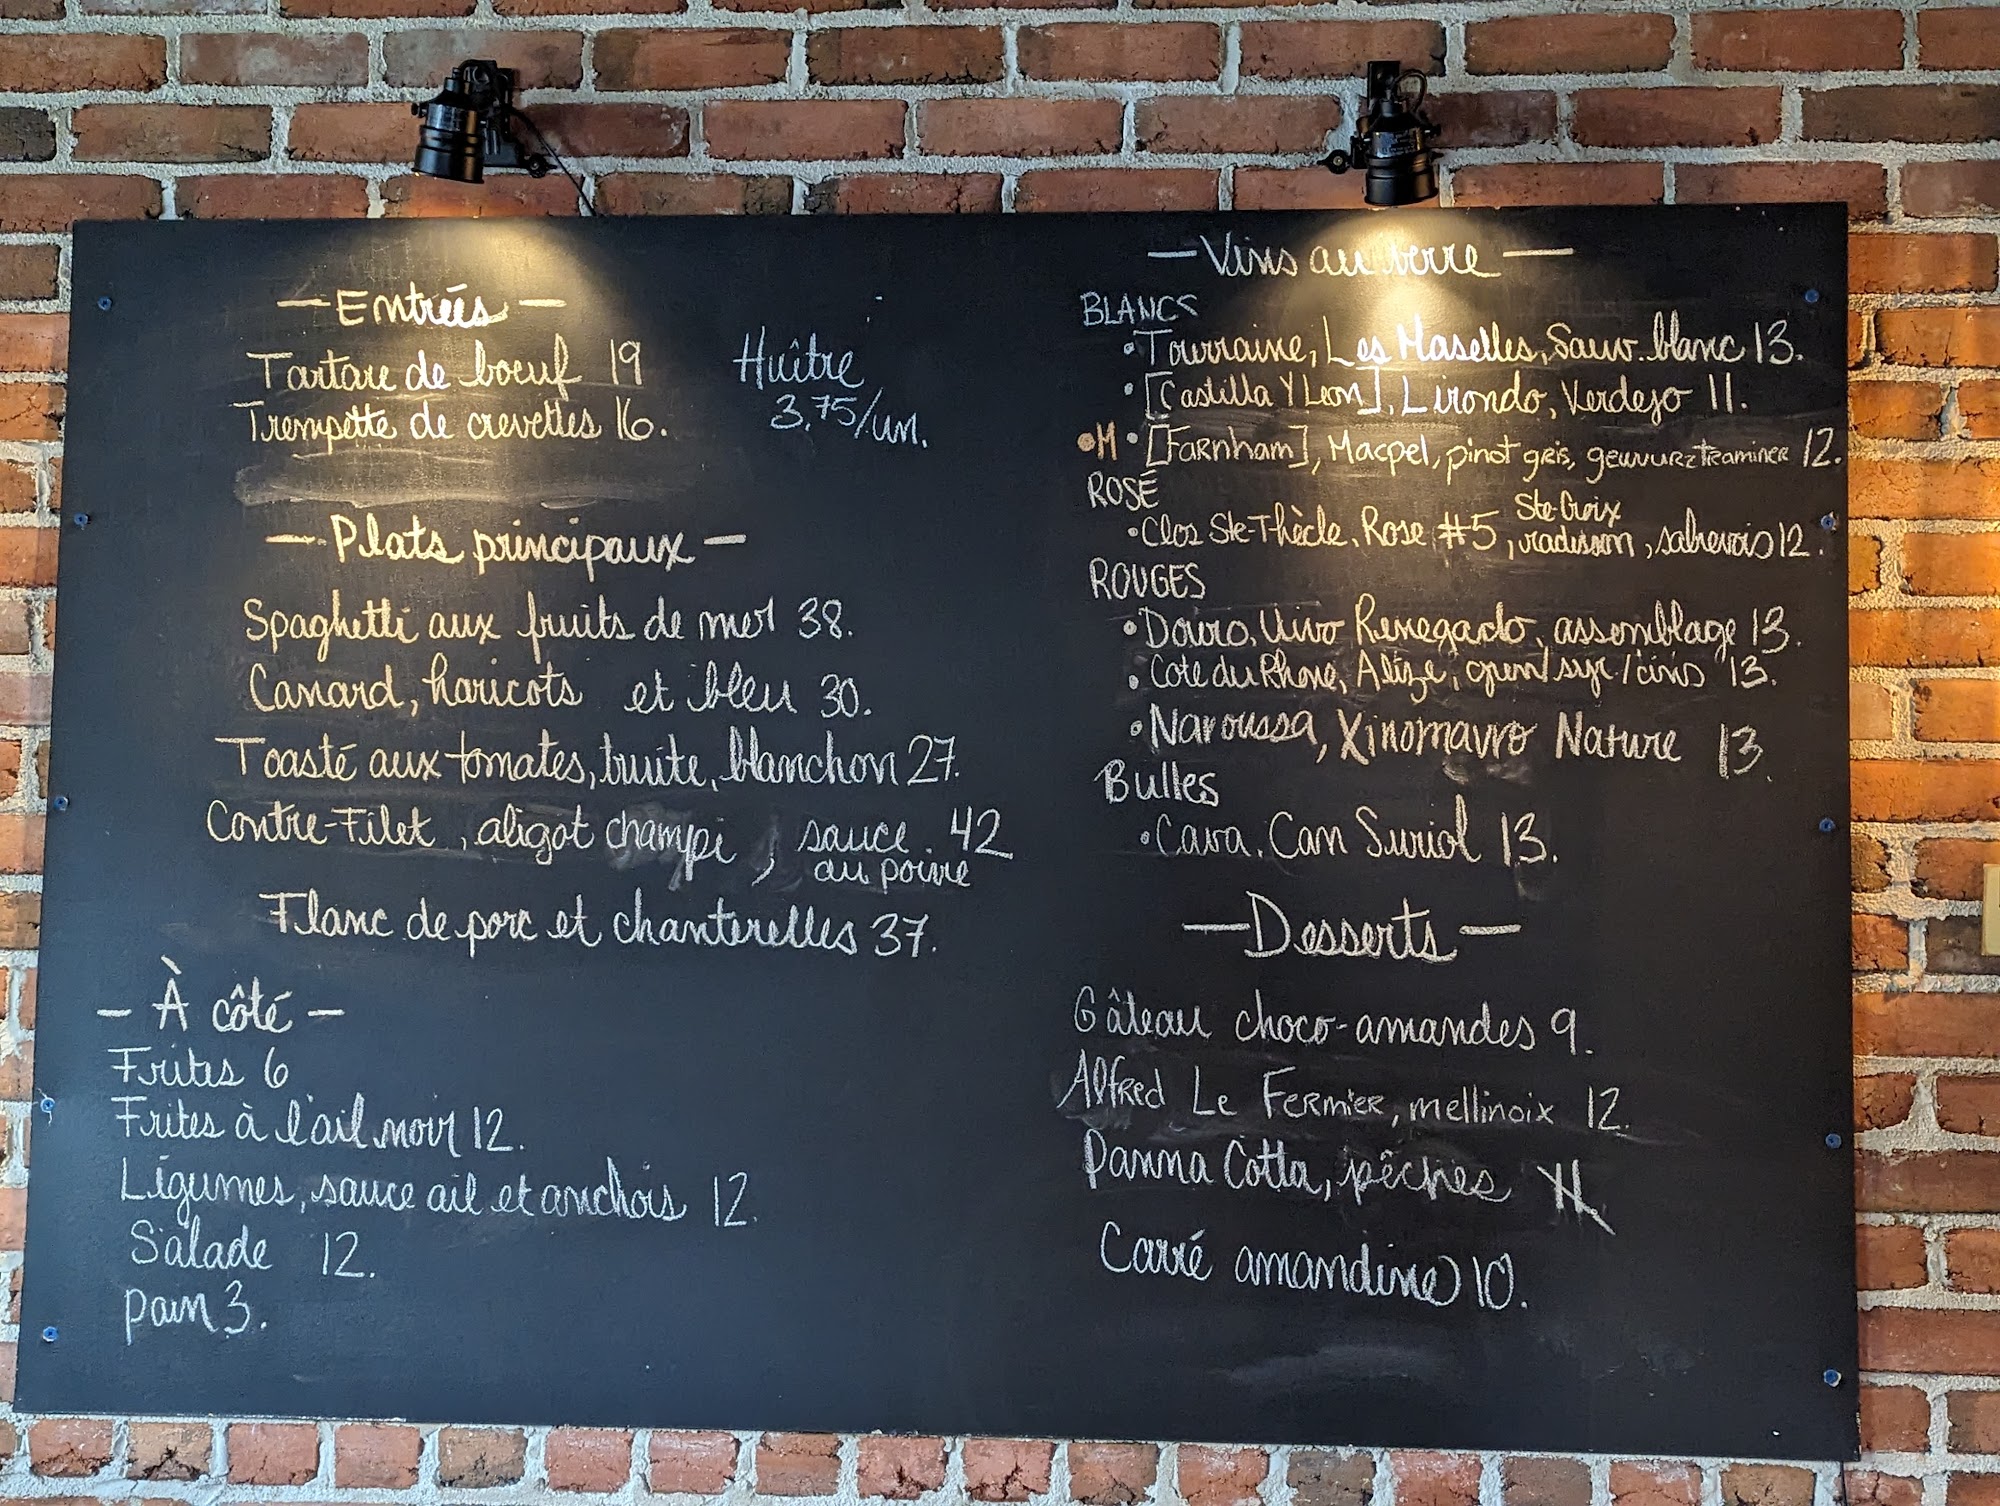 — Entrées —
Tartare de boeuf 19
Trempette de crevettes 16.
Huître
3.75/un.
— Plats principaux —
Spaghetti aux fruits de mer 38.
Canard, haricots et bleu 30.
Toasté aux tomates, truite, blanchon 27.
Contre-Filet, aligot champi, sauce . 42
au poivre
Flanc de porc et chanterelles 37.
— À côté —
Frites 6
Frites à l'ail noir 12.
Légumes, sauce ail et anchois 12.
Salade 12.
pain 3.
— Vins au verre —
BLANCS
• Tourraine, Les Maselles, Sauv. blanc 13.
• [Castilla Y Leon], Lirondo, Verdejo 11.
•M • [Farnham], Macpel, pinot gris, gewurztraminer 12.
ROSÉ
Ste-Croix
• Clos Ste-Thècle, Rose #5, radisson, sabrevois 12.
ROUGES
• Douro, Uivo Renegado, assemblage 13.
• Cote du Rhone, Alize, gren/syr/cins 13.
• Naroussa, Xinomavro Nature 13.
Bulles
• Cava, Can Suriol 13.
— Desserts —
Gâteau choco-amandes 9.
Alfred Le Fermier, mellinoix 12.
Panna Cotta, pêches
Carré amandine 10.